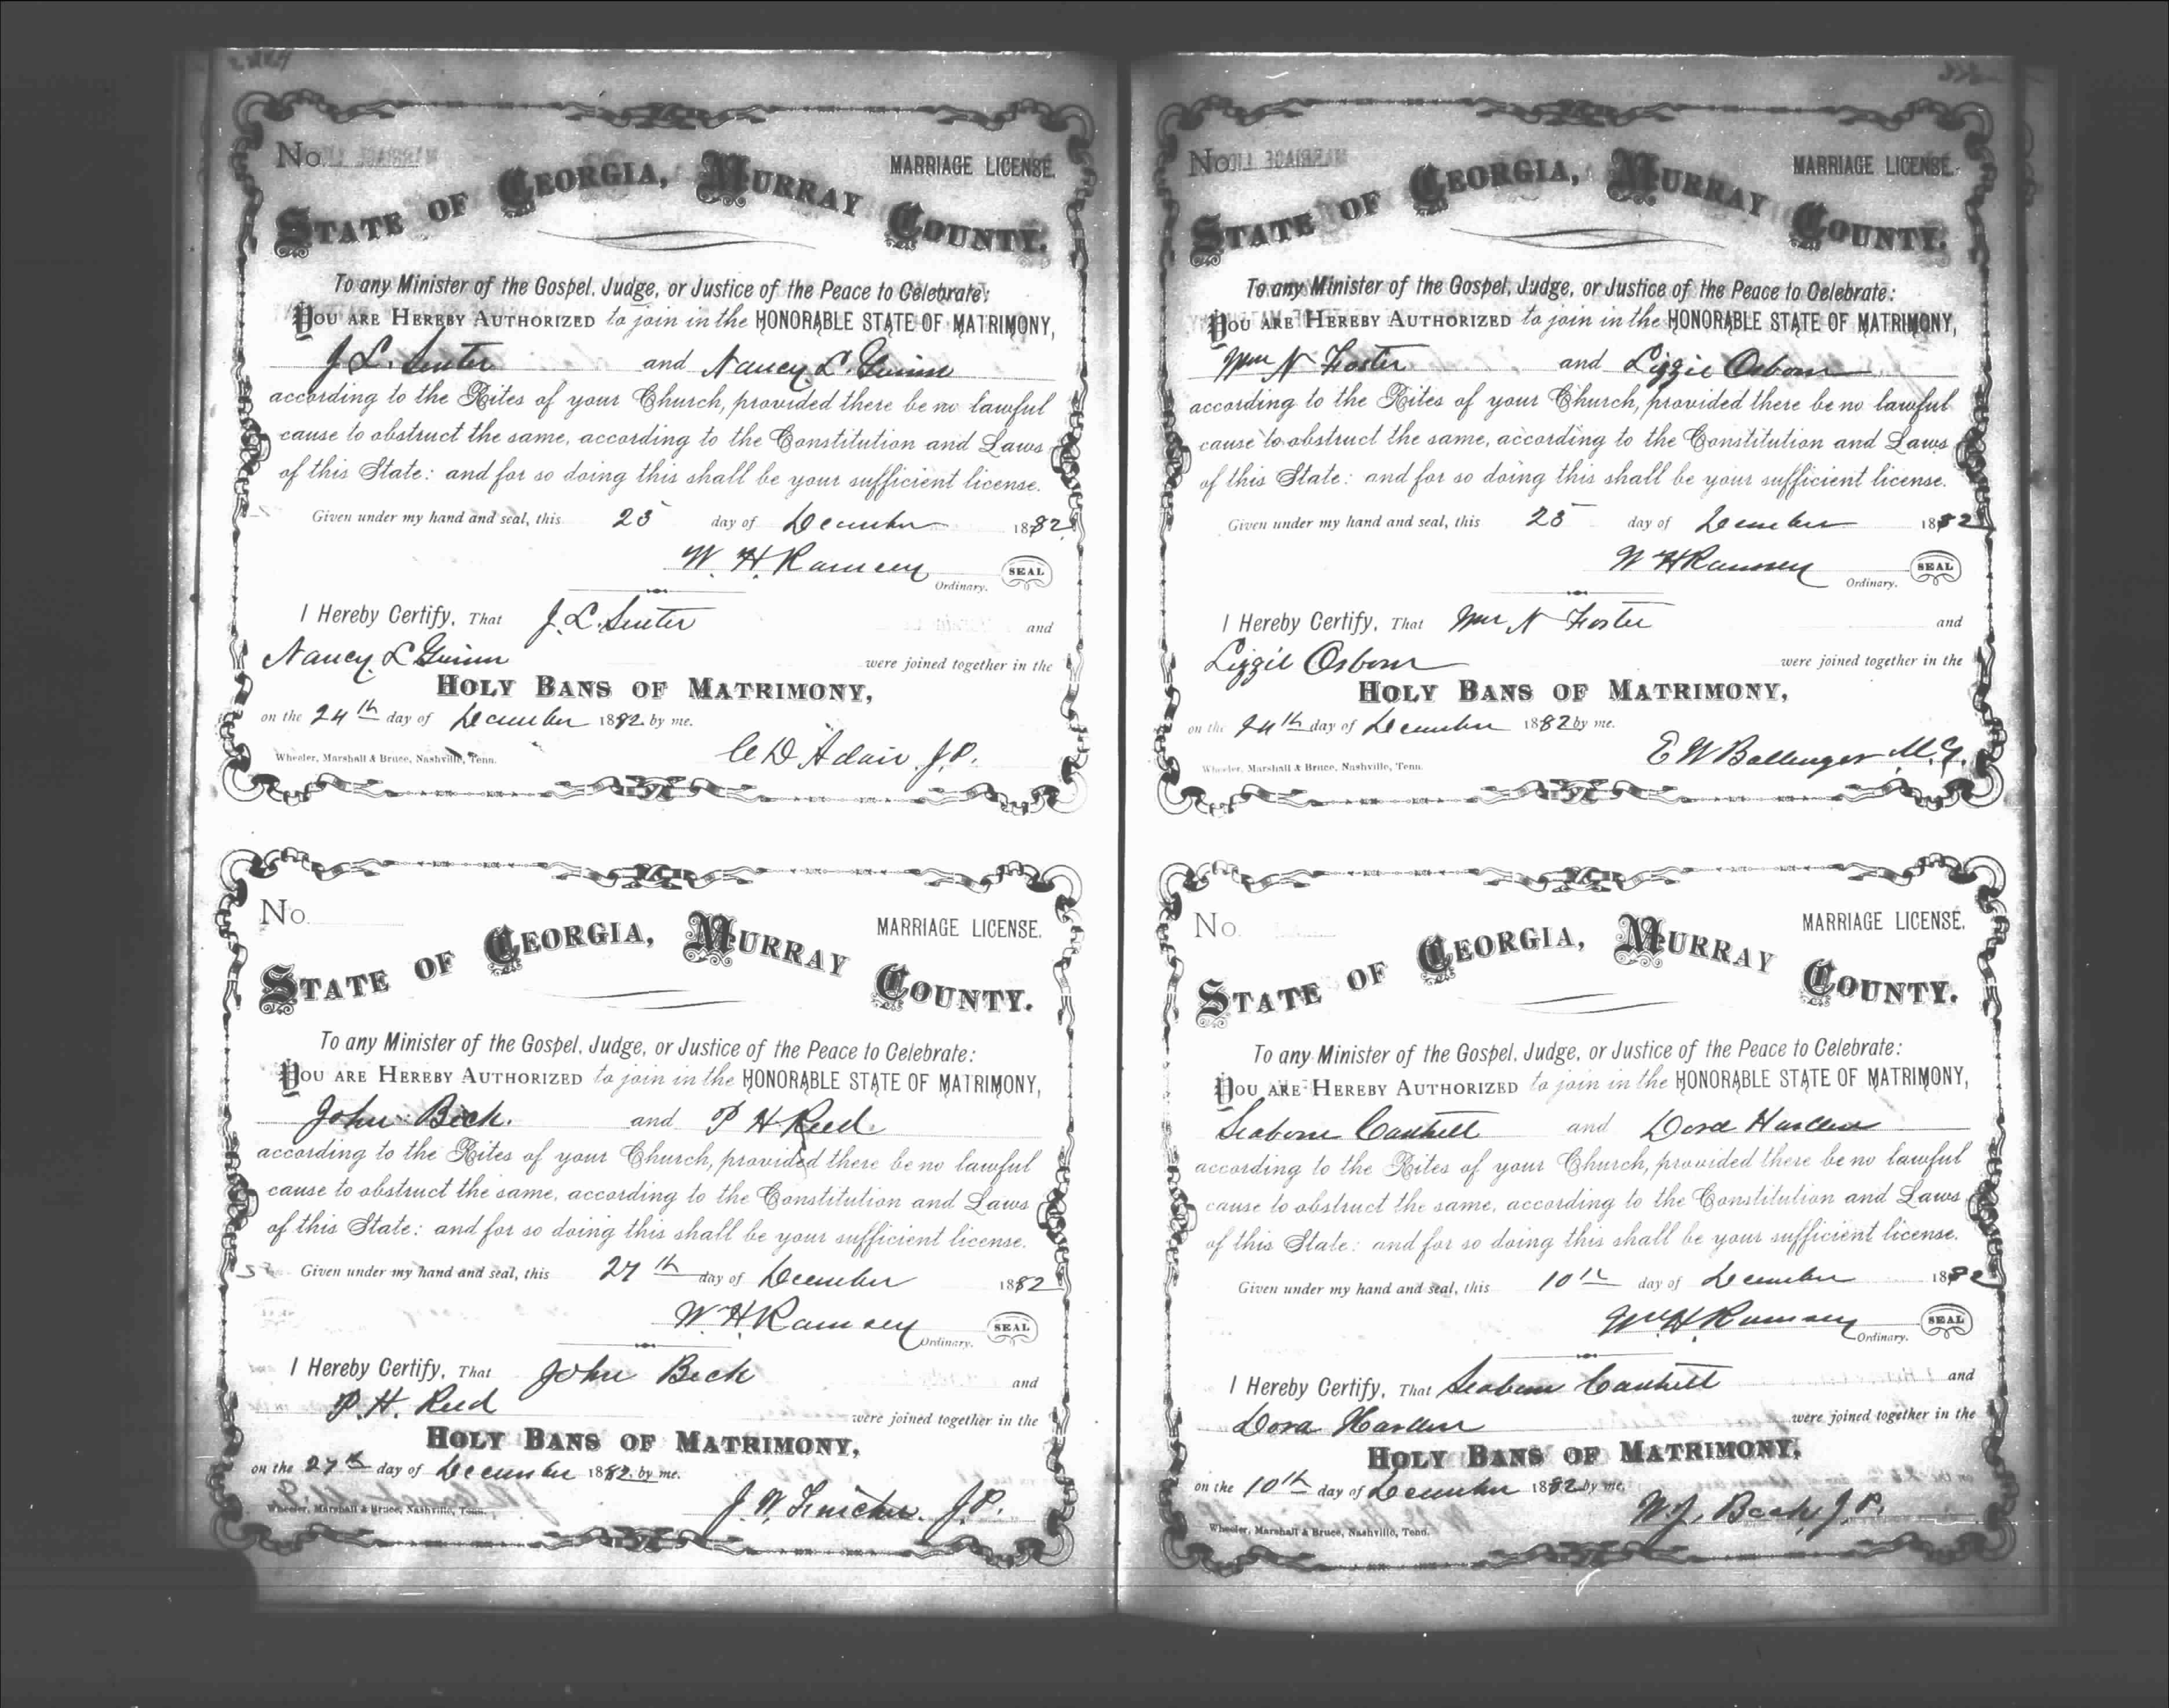 No. MARRIAGE LICENSE.
STATE OF GEORGIA, MURRAY COUNTY.
To any Minister of the Gospel, Judge, or Justice of the Peace to Celebrate:
YOU ARE HEREBY AUTHORIZED to join in the HONORABLE STATE OF MATRIMONY,
J. L. Senter and Nancy L. Guinn
according to the Rites of your Church, provided there be no lawful
cause to obstruct the same, according to the Constitution and Laws
of this State: and for so doing this shall be your sufficient license.
Given under my hand and seal, this 23 day of December 1882
W. H. Ramsey
Ordinary. SEAL
I Hereby Certify, That J. L. Senter and
Nancy L Guinn were joined together in the
HOLY BANS OF MATRIMONY,
on the 24th day of December 1882 by me.
C D Adair J.P.
Wheeler, Marshall & Bruce, Nashville, Tenn.
No. MARRIAGE LICENSE.
STATE OF GEORGIA, MURRAY COUNTY.
To any Minister of the Gospel, Judge, or Justice of the Peace to Celebrate:
YOU ARE HEREBY AUTHORIZED to join in the HONORABLE STATE OF MATRIMONY,
John Beck. and P H Reed
according to the Rites of your Church, provided there be no lawful
cause to obstruct the same, according to the Constitution and Laws
of this State: and for so doing this shall be your sufficient license.
Given under my hand and seal, this 27th day of December 1882
W. H. Ramsey
Ordinary. SEAL
I Hereby Certify, That John Beck and
P. H. Reed were joined together in the
HOLY BANS OF MATRIMONY,
on the 27th day of December 1882 by me.
J. W. J.P.
Wheeler, Marshall & Bruce, Nashville, Tenn.
No. MARRIAGE LICENSE.
STATE OF GEORGIA, MURRAY COUNTY.
To any Minister of the Gospel, Judge, or Justice of the Peace to Celebrate:
YOU ARE HEREBY AUTHORIZED to join in the HONORABLE STATE OF MATRIMONY,
Wm N Foster and Lizzie Osborn
according to the Rites of your Church, provided there be no lawful
cause to obstruct the same, according to the Constitution and Laws
of this State: and for so doing this shall be your sufficient license.
Given under my hand and seal, this 23 day of December 1882
W H Ramsey
Ordinary. SEAL
I Hereby Certify, That Wm N Foster and
Lizzie Osborn were joined together in the
HOLY BANS OF MATRIMONY,
on the 24th day of December 1882 by me.
E W Ballenger M.G.
Wheeler, Marshall & Bruce, Nashville, Tenn.
No. MARRIAGE LICENSE.
STATE OF GEORGIA, MURRAY COUNTY.
To any Minister of the Gospel, Judge, or Justice of the Peace to Celebrate:
YOU ARE HEREBY AUTHORIZED to join in the HONORABLE STATE OF MATRIMONY,
Seaborn Cantrell and Dora Harden
according to the Rites of your Church, provided there be no lawful
cause to obstruct the same, according to the Constitution and Laws
of this State: and for so doing this shall be your sufficient license.
Given under my hand and seal, this 10th day of December 1882
Wm H. Ramsey
Ordinary. SEAL
I Hereby Certify, That Seaborn Cantrell and
Dora Harden were joined together in the
HOLY BANS OF MATRIMONY,
on the 10th day of December 1882 by me,
W. J. Beck, J.P.
Wheeler, Marshall & Bruce, Nashville, Tenn.